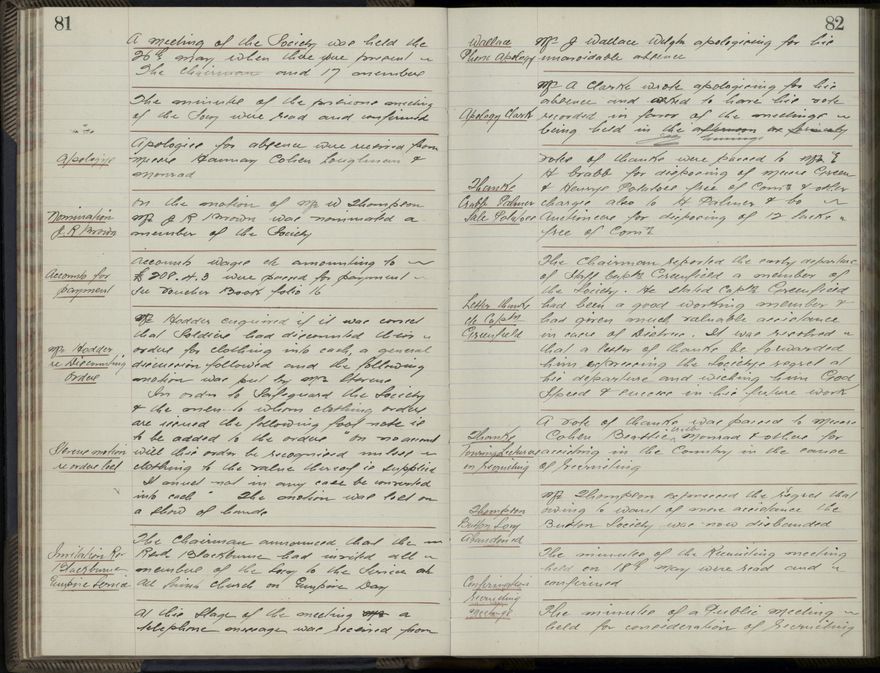 81
A meeting of the Society was held the
26th May when there were present
The Chairman and 17 members
The minutes of the previous meeting
of the Socy were read and confirmed
Apologies
Apologies for absence were received from
Messrs Hannay Cohen Loughnan &
Monrad
Nomination
J. R. Brown
On the motion of Mr W Thompson
Mr J R Brown was nominated a
member of the Society
Accounts for
payment
Accounts wages etc amounting to
£208.4.3 were passed for payment
See Voucher Book folio 16
Mr Hodder
re Discounting
orders
Mr Hodder enquired if it was correct
that Soldiers had discounted their
orders for clothing into cash, a general
discussion followed and the following
motion was put by Mrs Sterne
In order to Safeguard the Society
& the men to whom clothing orders
are issued the following foot note is
to be added to the orders "On no account
Sterne motion
re orders lost
will this order be recognised unless
clothing to the value thereof is supplied
It must not in any case be converted
into cash" The motion was lost on
a show of hands
Invitation Rev
Blackburne
Empire Service
The Chairman announced that the
Rev Blackburne had invited all
members of the Socy to the Service at
All Saints Church on Empire Day
At this stage of the meeting a
telephone message was received from
82
Wallace
Phone Apology
Mr J Wallace Wdgtn apologising for his
unavoidable absence
Apology Clark
Mr A Clark wrote apologising for his
absence and asked to have his vote
recorded in favor of the meetings
being held in the afternoon
evenings
Thanks
Crabb Palmer
Sale Potatoes
Votes of thanks were passed to Mr E
H Crabb for disposing of Messrs Green
& Henrys Potatoes free of Comn & other
charges also to H Palmer & Co
Auctioneers for disposing of 12 sacks
free of Comn
The Chairman reported the early departure
of Staff Captn Greenfield a member of
the Society. He stated Captn Greenfield
Letter thanks
Captn
Greenfield
had been a good working member &
had given much valuable assistance
in cases of Distress. It was resolved
that a letter of thanks be forwarded
him expressing the Societys regret at
his departure and wishing him God
Speed & success in his future work
Thanks
Touring Lecturers
on Recruiting
A vote of thanks was passed to Messrs
Cohen Beattie, Monrad & others for
assisting in the Country in the cause
of Recruiting
Thompson
Buxton Socy
Abandoned
Mr Thompson expressed the regret that
owing to want of more assistance the
Buxton Society was now disbanded
Confirmation
Recruiting
Meetings
The minutes of the Recruiting meeting
held on 18th May were read and
confirmed
The minutes of a Public meeting
held for consideration of Recruiting